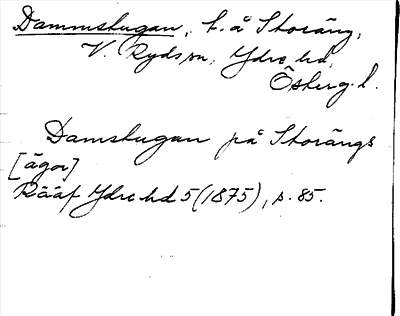 Dammstugan, t. å Storäng,
V. Ryds sn, Ydre hd,
Österg. l.
Damstugan på Storängs
[ägor]
Rääf Ydre hd 5 (1875), s. 85.